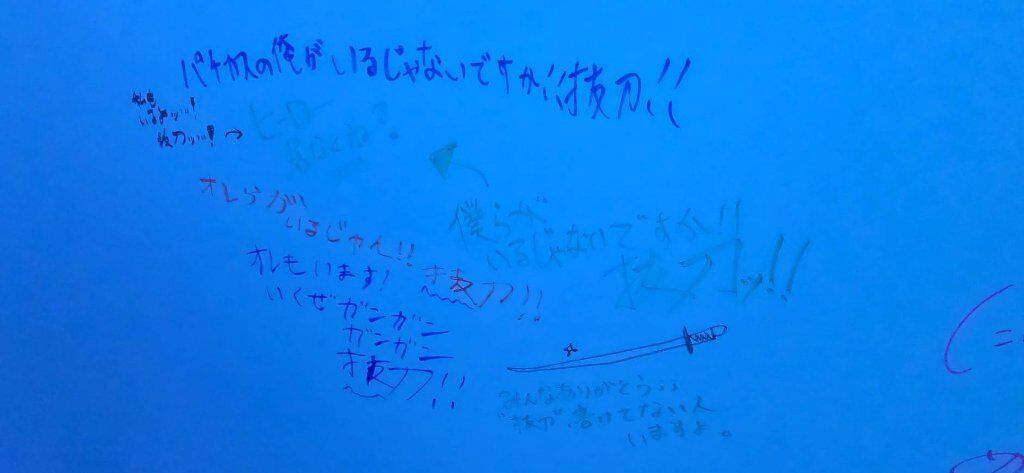 パチカスの俺がいるじゃないですか!!抜刀!!
私も
いるよッ…!
抜刀ッ…! →
ヒーロー
居なくね?
オレらが
いるじゃん!!
抜刀!!
僕らが
いるじゃないですか!!
抜刀ッ!!
オレもいます!
いくぜガンガン
ガンガン
抜刀!!
みんなありがとう;;
"抜"が、書けてない人
いますよ。
(=